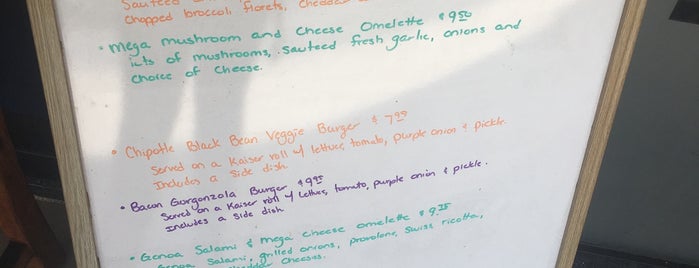 Sauteed
Chopped broccoli florets, Cheddar
• Mega mushroom and Cheese Omelette $9.50
lots of mushrooms, sauteed fresh garlic, onions and
Choice of Cheese.
• Chipotle Black Bean Veggie Burger $7.95
Served on a Kaiser roll w/ lettuce, tomato, purple onion & pickle.
Includes a side dish
• Bacon Gorgonzola Burger $9.95
Served on a Kaiser roll w/ lettuce, tomato, purple onion & pickle.
Includes a side dish
• Genoa Salami & Mega Cheese omelette $9.25
Genoa Salami, grilled onions, provolone, Swiss ricotta,
Cheddar Cheeses.